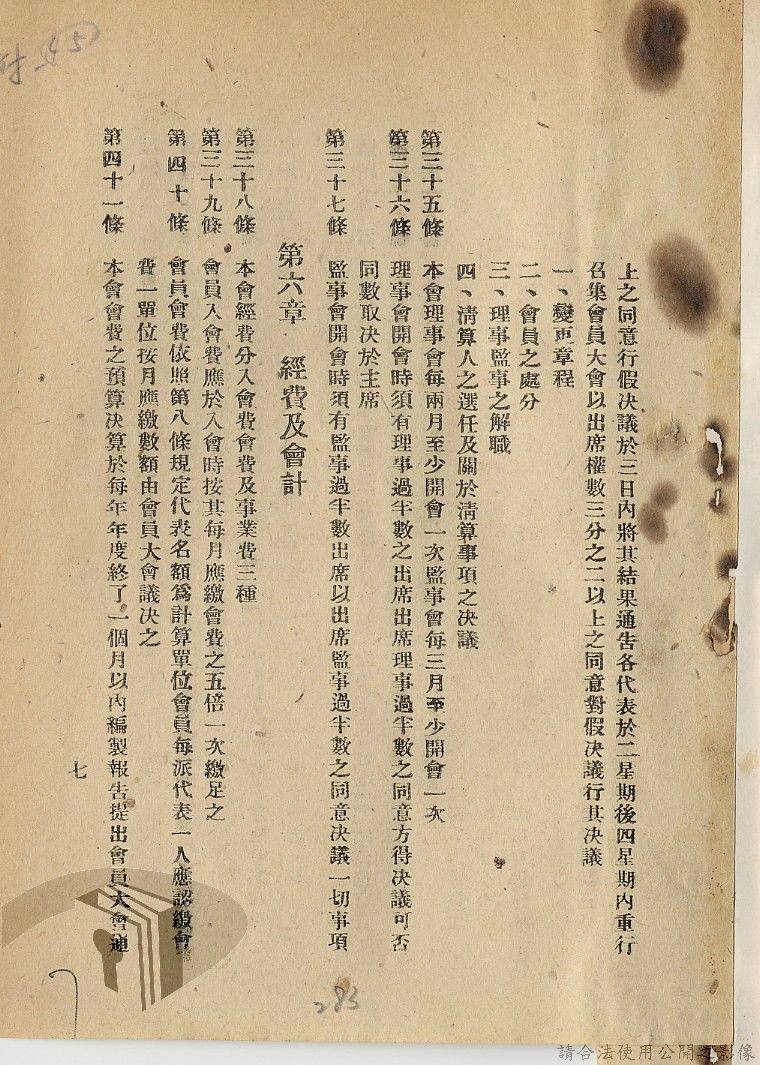 上之同意行假决議於三日內將其結果通告各代表於二星期後四星期內重行
召集會員大會以出席權數三分之二以上之同意對假决議行其决議
一、變更章程
二、會員之處分
三、理事監事之解職
四、淸算人之選任及關於淸算事項之决議
第三十五條　本會理事會每兩月至少開會一次監事會每三月至少開會一次
第三十六條　理事會開會時須有理事過半數之出席出席理事過半數之同意方得决議可否
同數取决於主席
第三十七條　監事會開會時須有監事過半數出席以出席監事過半數之同意决議一切事項
第六章　經費及會計
第三十八條　本會經費分入會費會費及事業費三種
第三十九條　會員入會費應於入會時按其每月應繳會費之五倍一次繳足之
第四十條　會員會費依照第八條規定代表名額爲計算單位會員每派代表一人應認繳會
費一單位按月應繳數額由會員大會議决之
第四十一條　本會會費之預算决算於每年年度終了一個月以內編製報告提出會員大會通
七
283
請合法使用公開之影像